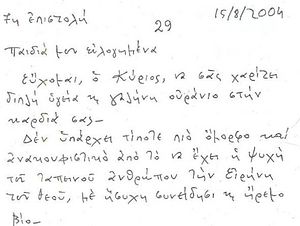 7η ἐπιστολή 29 15/8/2004
Παιδιά μου εὐλογημένα
Εὔχομαι, ὁ Κύριος, νά σᾶς χαρίζει
διπλῆ ὑγεία κ γαλήνη οὐράνιο στήν
καρδιά σας—
Δέν ὑπάρχει τίποτε πιό ὄμορφο καί
ἀνακουφιστικό ἀπό τό νά ἔχει ἡ ψυχή
τοῦ ταπεινοῦ ἀνθρώπου τήν Εἰρήνη
τοῦ Θεοῦ, μέ ἥσυχη συνείδηση κ ἤρεμο
βίο—